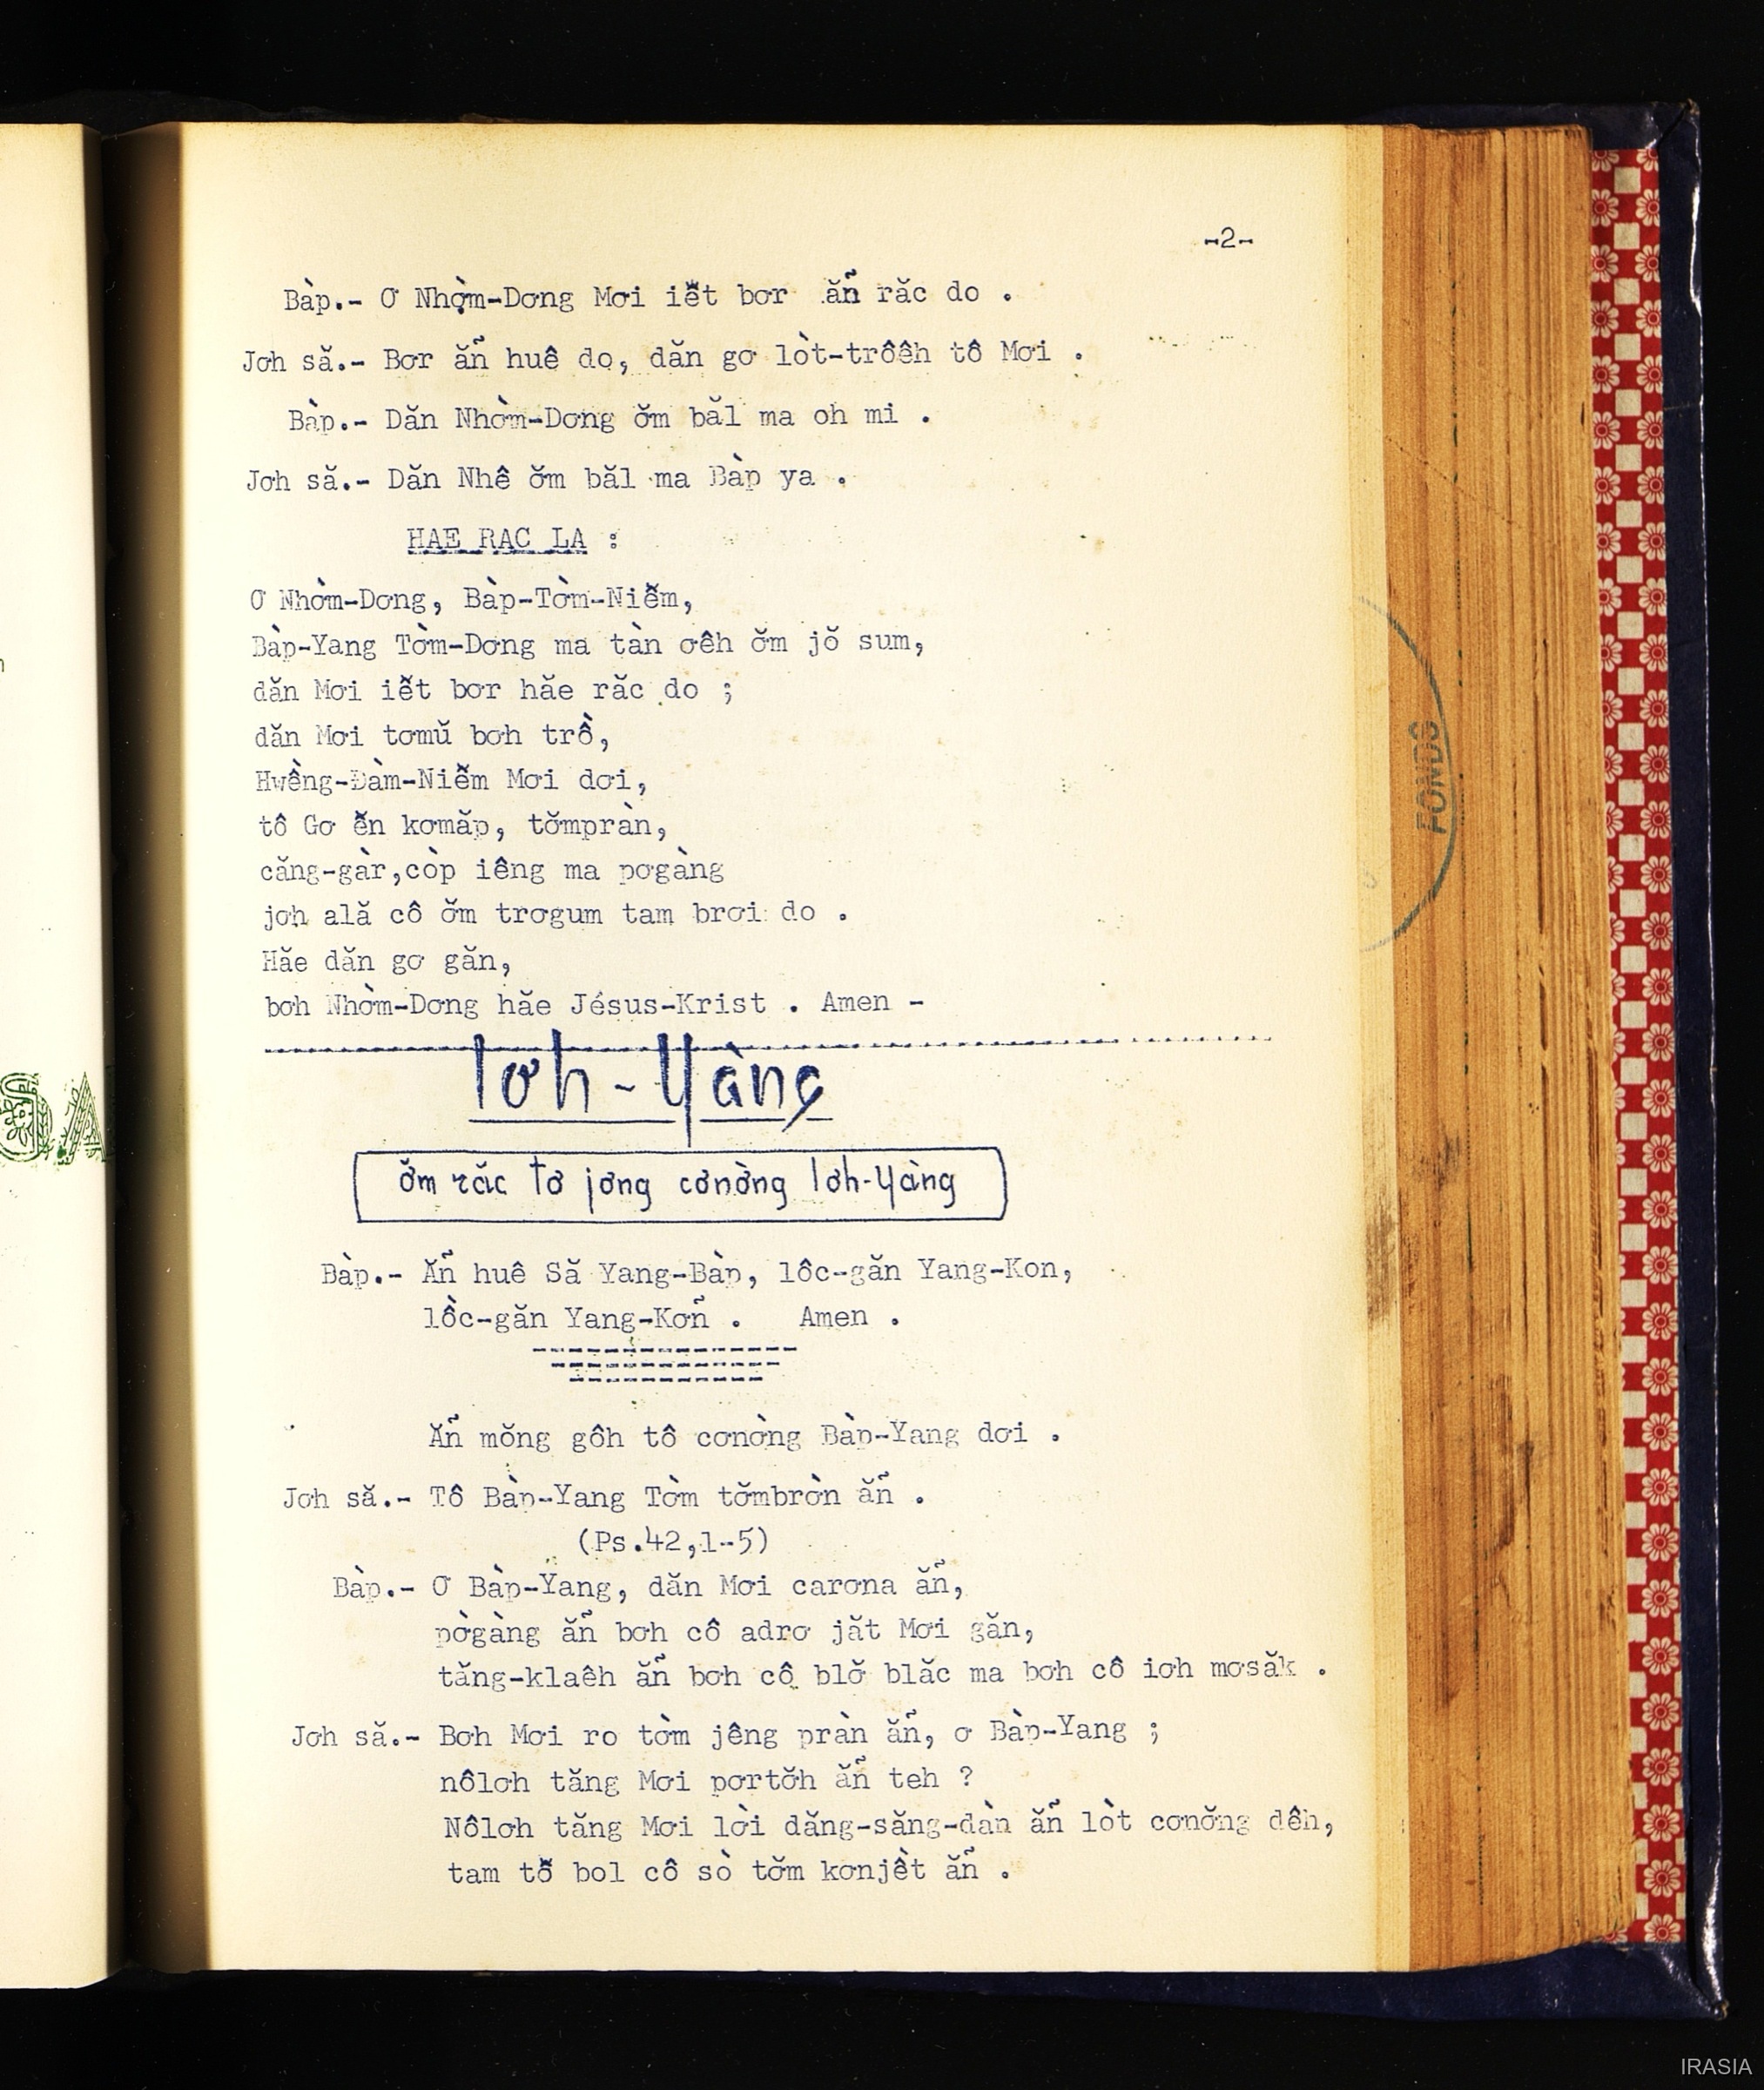 -2-
Bàp.- Ơ Nhờm-Dơng Mơi iĕt bơr ăñ răc do .
Jơh să.- Bơr ăñ huê do, dăn gơ lòt-trôêh tô Mơi .
Bàp.- Dăn Nhờm-Dơng ơ̆m băl ma oh mi .
Jơh să.- Dăn Nhê ơ̆m băl ma Bàp ya .
HAE RAC LA :
Ơ Nhờm-Dơng, Bàp-Tờm-Niê̆m,
Bàp-Yang Tờm-Dơng ma tàn ơêh ơ̆m jŏ sum,
dăn Mơi iê̆t bơr hăe răc do ;
dăn Mơi tơmŭ bơh trồ,
Hwềng-Đàm-Niê̆m Mơi dơi,
tô Gơ ê̆n kơmăp, tơ̆mpràn,
căng-gàr,còp iêng ma pơgàng
jơh ală cô ơ̆m trơgum tam brơi do .
Hăe dăn gơ găn,
bơh Nhờm-Dơng hăe Jésus-Krist . Amen -
lơh - Yàng
ơ̆m răc tơ jơng cơnờng lơh-Yàng
Bàp.- Ăñ huê Să Yang-Bàp, lôc-găn Yang-Kon,
lồc-găn Yang-Kơñ . Amen .
Ăñ mŏng gôh tô cơnờng Bàp-Yang dơi .
Jơh să.- Tô Bàp-Yang Tờm tơ̆mbrờn ăñ .
(Ps.42,1-5)
Bàp.- Ơ Bàp-Yang, dăn Mơi carơna ăñ,
pờgàng ăñ bơh cô adrơ jăt Mơi găn,
tăng-klaêh ăñ bơh cô blơ̆ blăc ma bơh cô iơh mơsăk .
Jơh să.- Bơh Mơi ro tờm jêng pràn ăñ, ơ Bàp-Yang ;
nôlơh tăng Mơi pơrtơ̆h ăñ teh ?
Nôlơh tăng Mơi lời dăng-săng-dàn ăñ lòt cơnơ̆ng dêh,
tam tô̆ bol cô sò tơ̆m kơnjềt ăñ .
FONDS
IRASIA